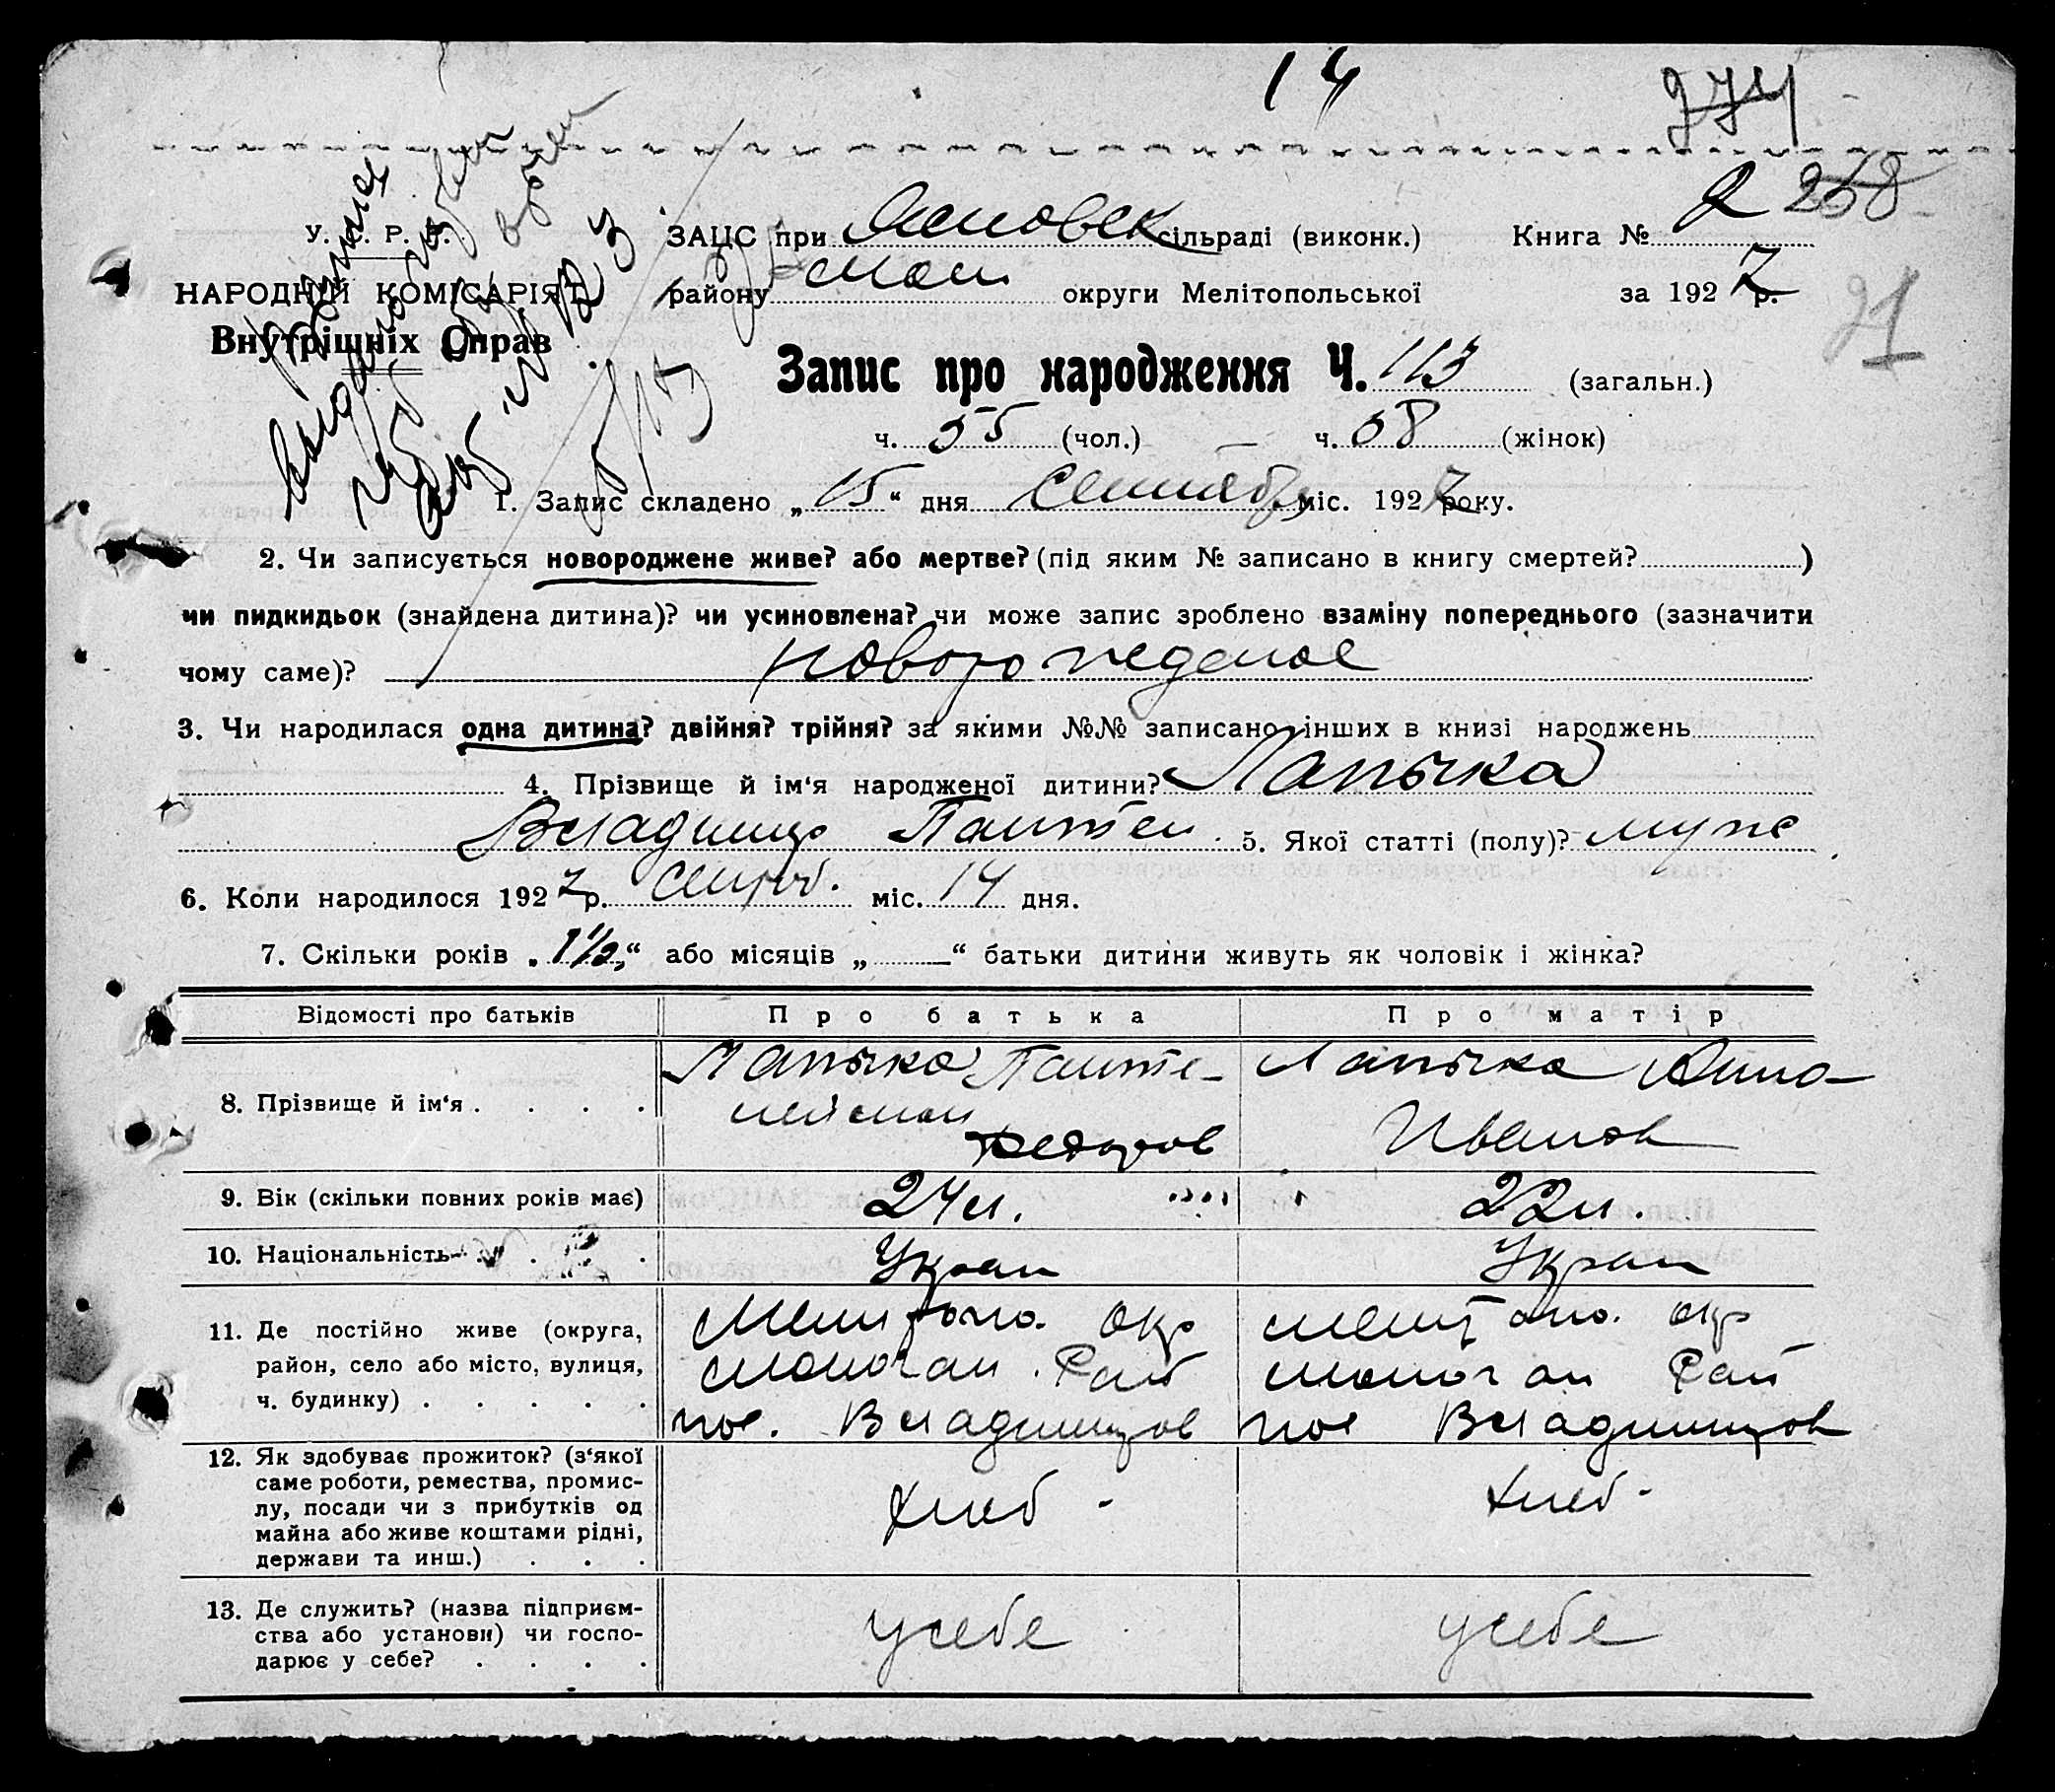 14
274
У. С. Р. Р.
НАРОДНИЙ КОМІСАРІЯТ
Внутрішніх Справ
ЗАЦС при сільраді (виконк.) Книга № 2 268
району округи Мелітопольської за 1927 р.
21
Запис про народження Ч. 113 (загальн.)
ч. 55 (чол.) — ч. 58 (жінок)
1. Запис складено „15“ дня Сентябр міс. 1927 року.
2. Чи записується новороджене живе? або мертве? (під яким № записано в книгу смертей? )
чи пидкидьок (знайдена дитина)? чи усиновлена? чи може запис зроблено взаміну попереднього (зазначити
чому саме)? новорожденое
3. Чи народилася одна дитина? двійня? трійня? за якими №№ записано інших в книзі народжень
4. Прізвище й ім‘я народженої дитини? Лапычка
Владимир Пантел. 5. Якої статті (полу)? муж
6. Коли народилося 1927 р. сентяб. міс. 14 дня.
7. Скільки років „1½“ або місяців „—“ батьки дитини живуть як чоловік і жінка?
Відомості про батьків Про батька Про матір
8. Прізвище й ім‘я . . . . Лапычка Панте- Лапычка Анна
леймон Федоров Иванов
9. Вік (скільки повних років має) 24 л. 22 л.
10. Національність Украи Украи
11. Де постійно живе (округа, Мелитопо. окр мелитопо. окр
район, село або місто, вулиця, Рай Рай
ч. будинку) . . . . . пос. Владимиров пос Владимиров
12. Як здобуває прожиток? (з‘якої
саме роботи, ремества, промис-
лу, посади чи з прибутків од хлеб - хлеб -
майна або живе коштами рідні,
держави та инш.) . . .
13. Де служить? (назва підприєм-
ства або установи) чи госпо- у себе у себе
дарює у себе? . . . .